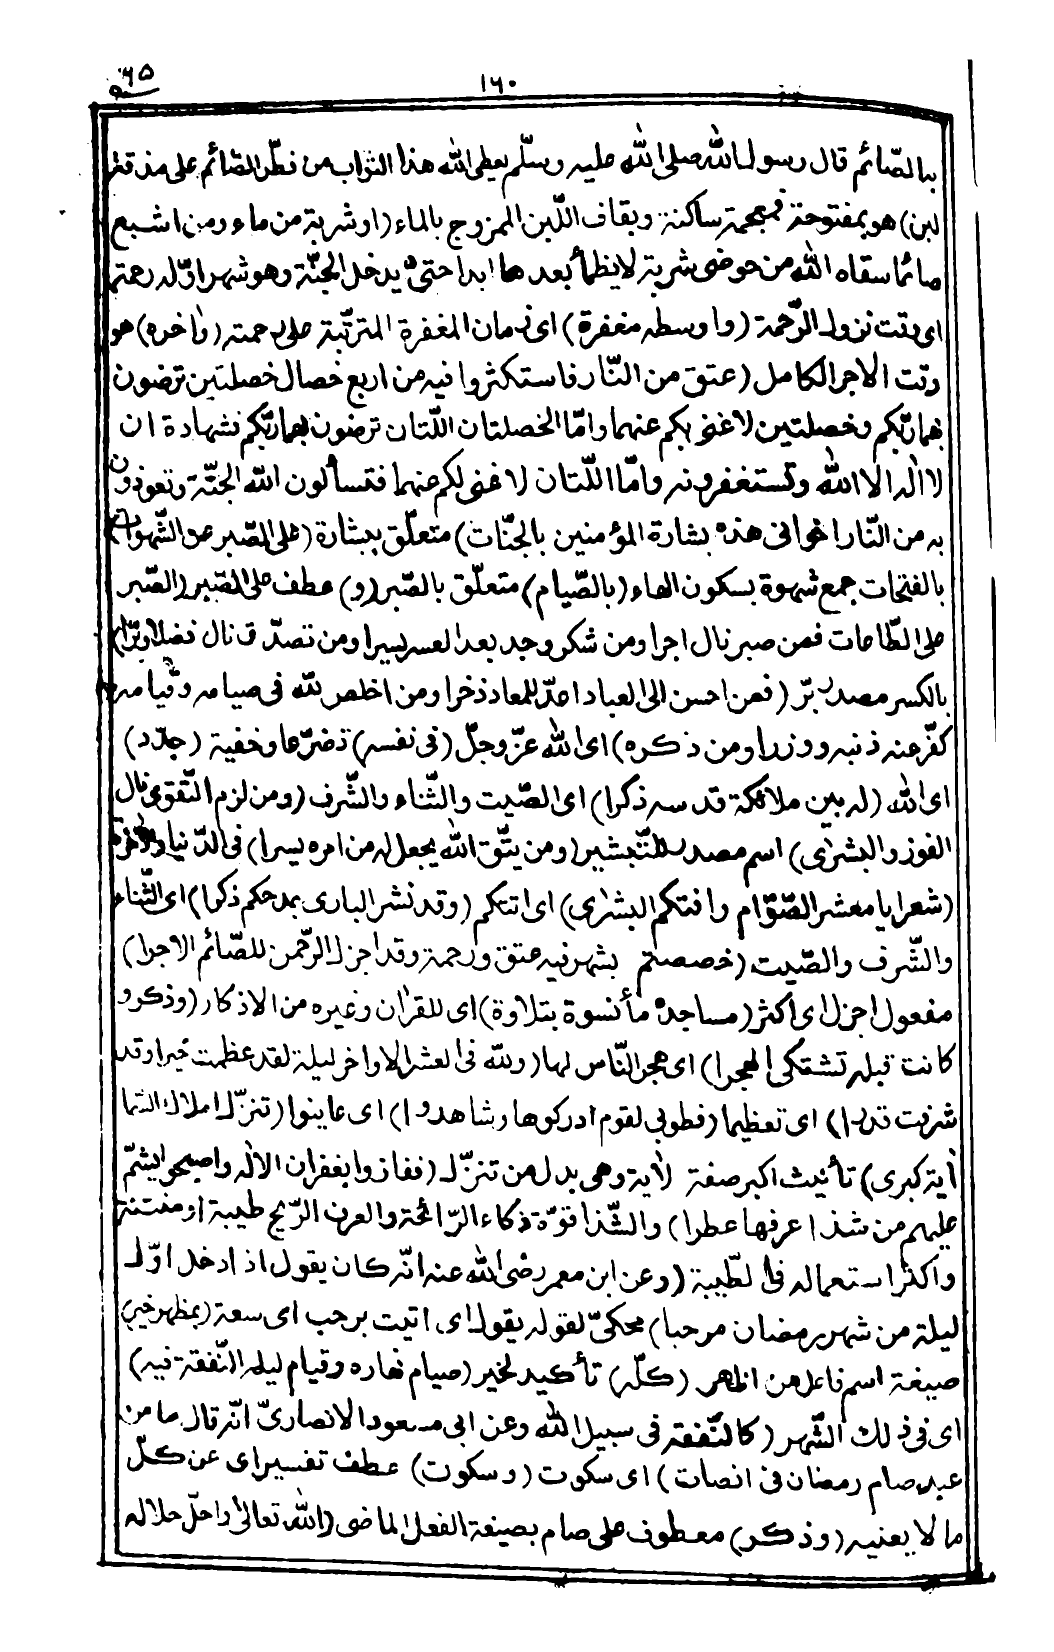 ٦٥
١٦٠
به الصّائم قال رسول الله صلى الله عليه وسلّم يعطى الله هذا الثواب من فطّر الصّائم على مذقة
لبن) هو بمفتوحة فمعجمة ساكنة وبقاف اللّبن الممزوج بالماء (او شربة من ماء ومن اشبع
صائما سقاه الله من حوضى شربة لا يظمأ بعدها ابدا حتى يدخل الجنّة وهو شهر اوّله رحمة
اى وقت نزول الرّحمة (واوسطه مغفرة) اى زمان المغفرة المترتّبة على رحمته (واخره) هو
وقت الاجر الكامل (عتق من النّار فاستكثروا فيه من اربع خصال خصلتين ترضون
بهما ربّكم وخصلتين لا غنى بكم عنهما وامّا الخصلتان اللّتان ترضون بهما ربّكم شهادة ان
لا اله الا الله وتستغفرونه وامّا اللّتان لا غنى لكم عنهما فتسألون الله الجنّة وتعوذون
به من النّار اخوانى هذه بشارة المؤمنين بالجنّات) متعلّق ببشارة (على الصّبر عن الشّهوات)
بالفتحات جمع شهوة بسكون الهاء (بالصّيام) متعلّق بالصّبر (و) عطف على الصّبر (الصّبر
على الطّاعات فمن صبر نال اجرا ومن شكر وجد بعد العسر يسيرا ومن تصدّق نال فضلا وبرّا)
بالكسر مصدر برّ (فمن احسن الى العباد اعدّ للمعاد ذخرا ومن اخلص للّه فى صيامه وقيامه
كفّر عنه ذنبه ووزرا ومن ذكره) اى الله عزّ وجلّ (فى نفسه) تضرّعا وخفية (جدّد)
اى الله (له بين ملائكة قدسه ذكرا) اى الصّيت والثّناء والشّرف (ومن لزم التّقوى نال
الفوز والبشرى) اسم مصدر للتّبشير (ومن يتّق الله يجعل له من امره يسرا) فى الدّنيا والاخرة
(شعرا يا معشر الصّوّام وافتكم البشرى) اى اتتكم (وقد نشر البارى بمدحكم ذكرا) اى الثّناء
والشّرف والصّيت (خصصتم بشهر فيه عتق ورحمة وقد اجزل الرّحمن للصّائم الاجرا)
مفعول اجزل اى اكثر (مساجده مأنسوة بتلاوة) اى للقران وغيره من الاذكار (وذكر و
كانت قبله تشتكى الهجرا) اى هجر النّاس لها (ولله فى العشر الاواخر ليلة لقد عظمت خيرا وقد
شرفت قدرا) اى تعظيما (فطوبى لقوم ادركوها وشاهدوا) اى عاينوا (تنزّل املاك السّما
اية كبرى) تأنيث اكبر صفة لاية وهى بدل من تنزّل (ففازوا بغفران الاله واصبحوا يشمّ
عليهم من شذا عرفها عطرا) والشّذا قوّة ذكاء الرّائحة والعرف الرّيح طيبة او منتنة
واكثر استعماله فى الطّيبة (وعن ابن معمر رضى الله عنه انّه كان يقول اذا دخل اوّل
ليلة من شهر رمضان مرحبا) محكىّ لقوله يقول اى اتيت برحب اى سعة (بمظهر خير)
صيغة اسم فاعل من اظهر (كلّه) تأكيد لخير (صيام نهاره وقيام ليله النّفقة فيه)
اى فى ذلك الشّهر (كالنّفقة فى سبيل الله وعن ابى مسعود الانصارىّ انّه قال ما من
عبد صام رمضان فى انصات) اى سكوت (وسكوت) عطف تفسير اى عن كلّ
ما لا يعنيه (وذكر) معطوف على صام بصيغة الفعل الماضى (الله تعالى واحلّ حلاله